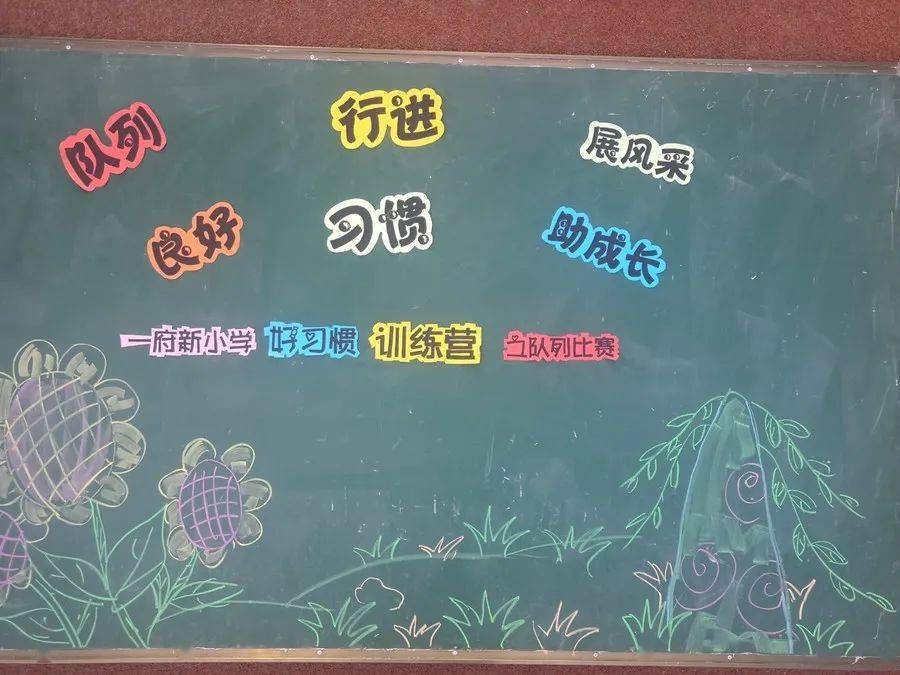 队列 行进 展风采
良好 习惯 助成长
一府新小学 好习惯 训练营 之队列比赛